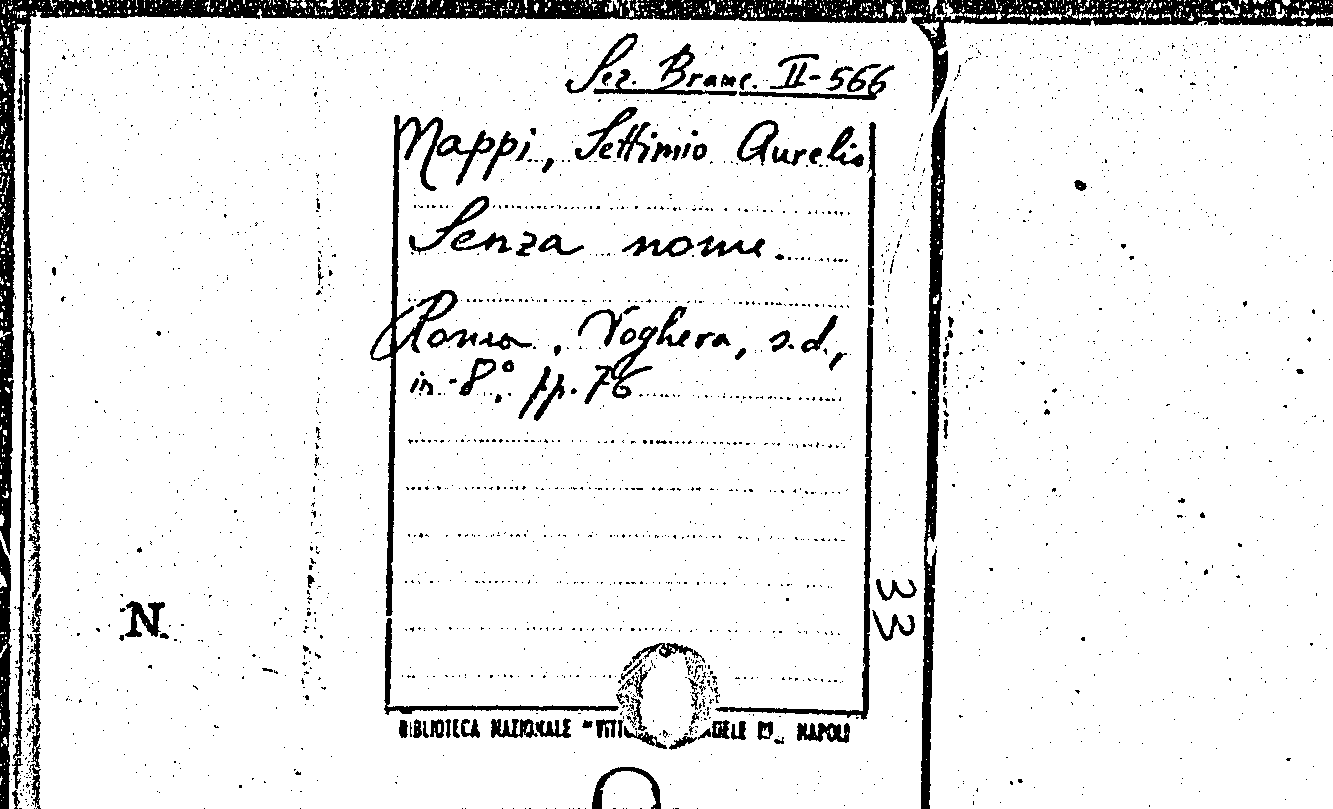 Sez. Branc. II-566
Mappi, Settimio Aurelio
Senza nome.
Roma, Voghera, s.d.,
in-8°, pp. 76
33
N.
BIBLIOTECA NAZIONALE "VITTO ADELE III„ NAPOLI